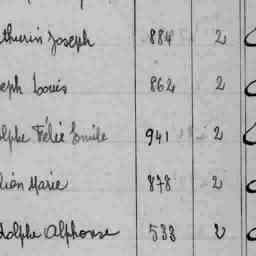 thurin Joseph 884 2
eph Louis 862 2
olphe Félié Emile 941 2
lien Marie 878 2
dolphe Alphonse 533 2